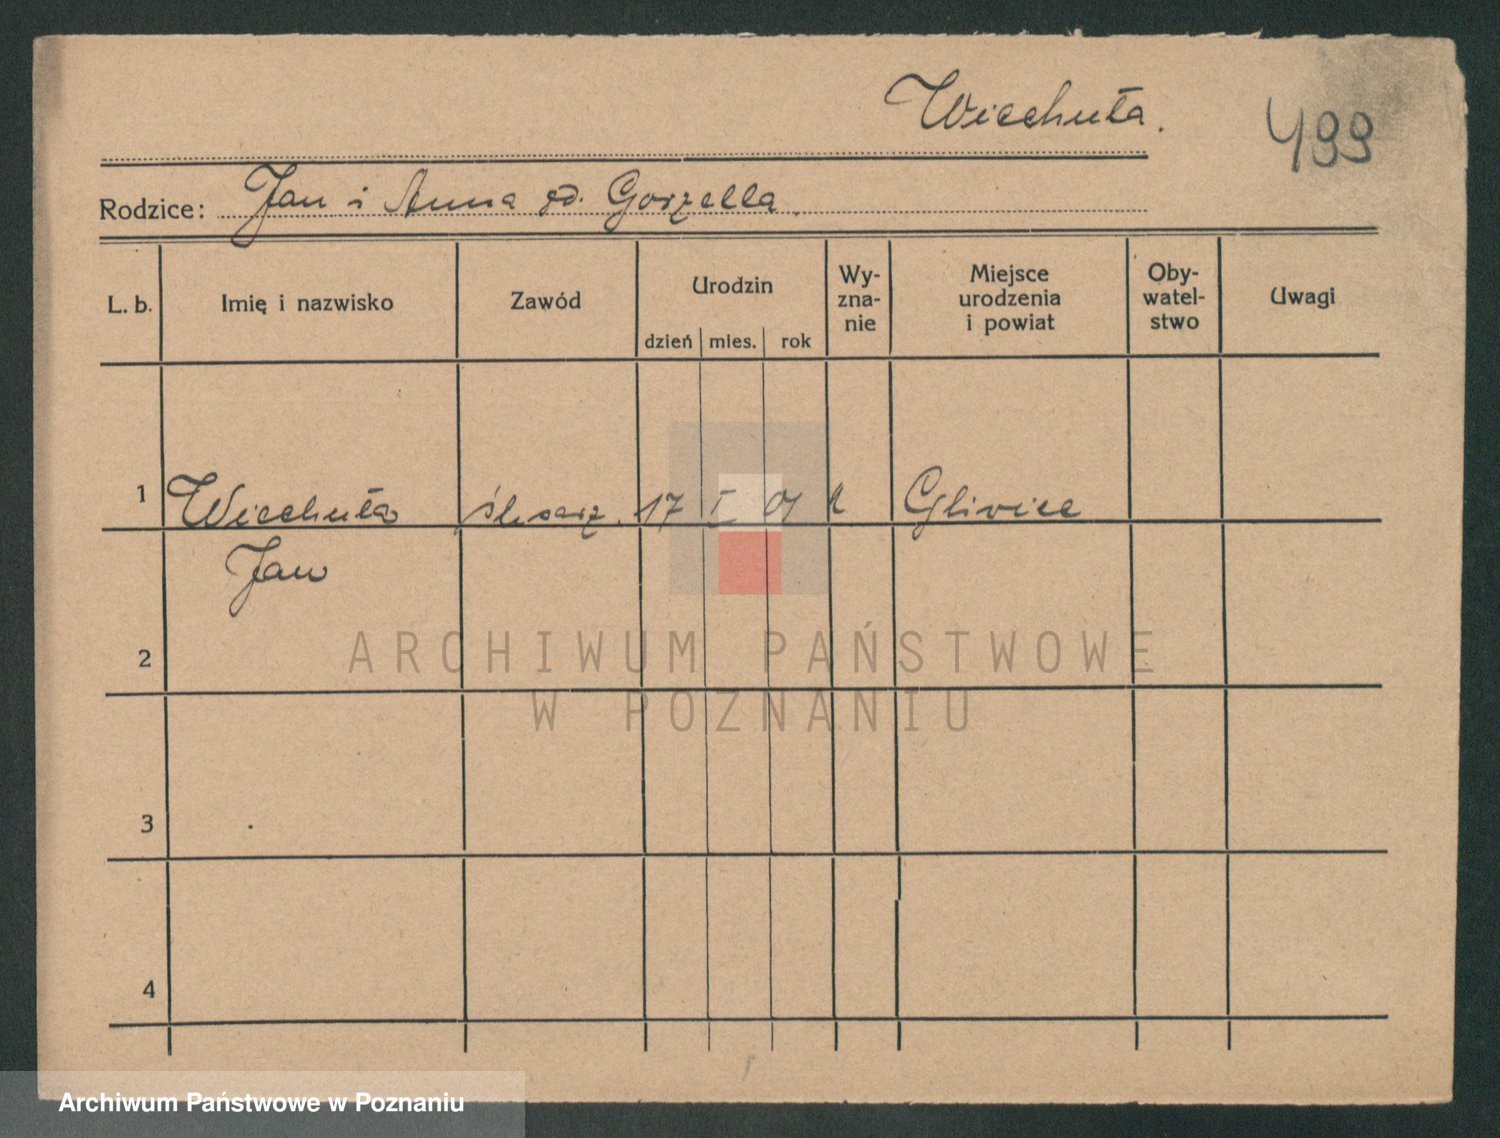 Wiechuła.
499
Rodzice: Jan i Anna zd. Gorzella.
L. b. Imię i nazwisko Zawód Urodzin dzień mies. rok Wy-zna-nie Miejsce urodzenia i powiat Oby-watel-stwo Uwagi
1 Wiechuła ślusarz. 17 I 01 k Gliwice
Jan
2
ARCHIWUM PAŃSTWOWE
W POZNANIU
3
4
Archiwum Państwowe w Poznaniu